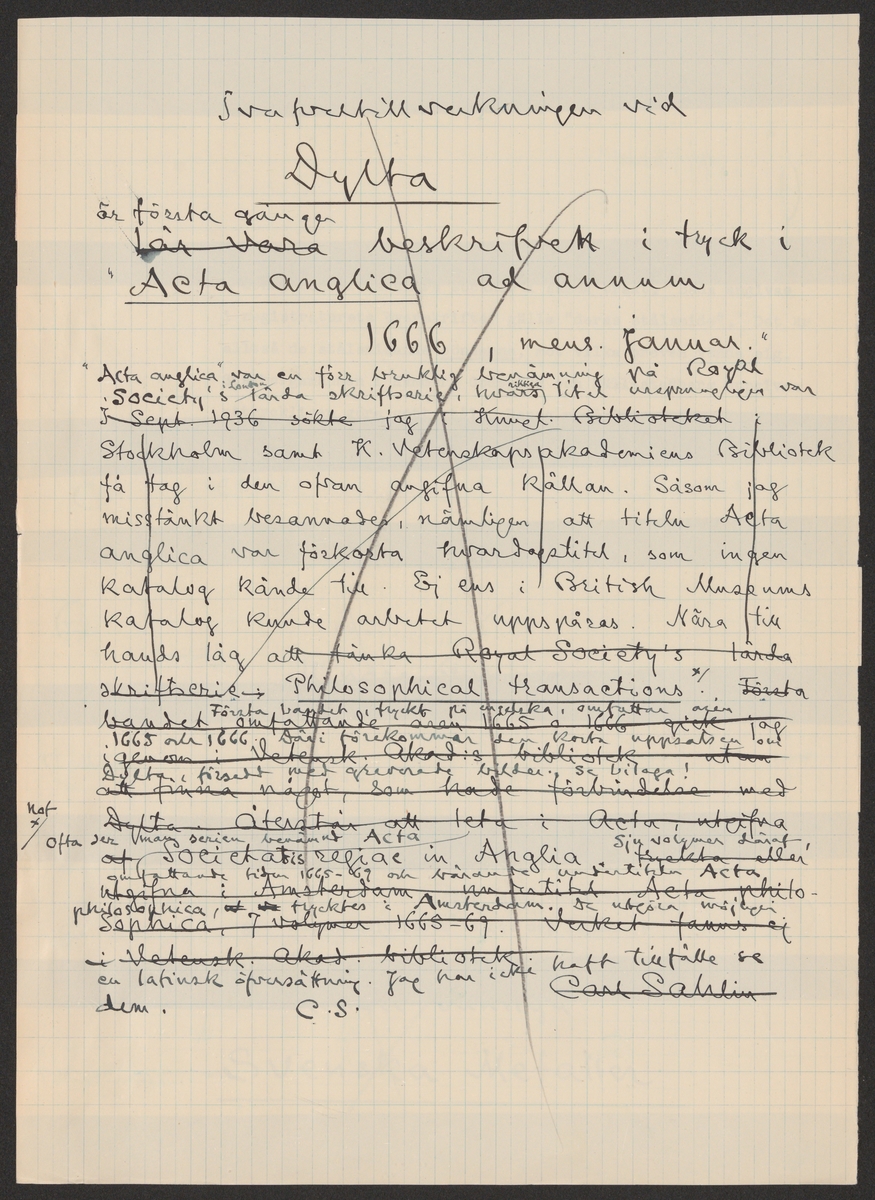 Svafveltillverkningen vid
Dylta
är första gången
lär vara beskrifven i tryck i
"Acta anglica ad annum
1666, mens. Januar."
"Acta anglica" var en förr bruklig benämning på Royal
i London riktiga
Society's lärda skriftserie, hvars titel ursprungligen var
I Sept. 1936 sökte jag i Kungl. Biblioteket i
Stockholm samt K. Vetenskapsakademiens Bibliotek
få tag i den ofvan angifna källan. Såsom jag
misstänkt besannades, nämligen att titeln Acta
anglica var förkorta hvardagstitel, som ingen
katalog kände till. Ej ens i British Museums
katalog kunde arbetet uppspåras. Nära till
hands låg att tänka Royal Society's lärda
skriftserie: Philosophical transactions x/. Första
Första bandet, tryckt på engelska, omfattar åren
bandet omfattande åren 1665 o 1666 gick jag
1665 och 1666. Däri förekommer den korta uppsatsen om
igenom i Vetensk. Akad:s bibliotek utan
Dylta, försedt med graverade bilder. Se bilaga!
att finna något, som hade förbindelse med
Dylta. Återstår att leta i Acta, utgifna
not
x/ Ofta ser man serien benämnd Acta Sju volymer däraf,
af Societatis regiae in Anglia tryckta eller
omfattande tiden 1665-69 och bärande undertiteln Acta
utgifna i Amsterdam, undertitel Acta philo-
philosophica, trycktes i Amsterdam. De utgöra möjligen
sophica, 7 volymer 1665-69. Verket fanns ej
i Vetensk. Akad. bibliotek.
en latinsk öfversättning. Jag har icke haft tillfälle se
Carl Sahlin
dem. C.S.